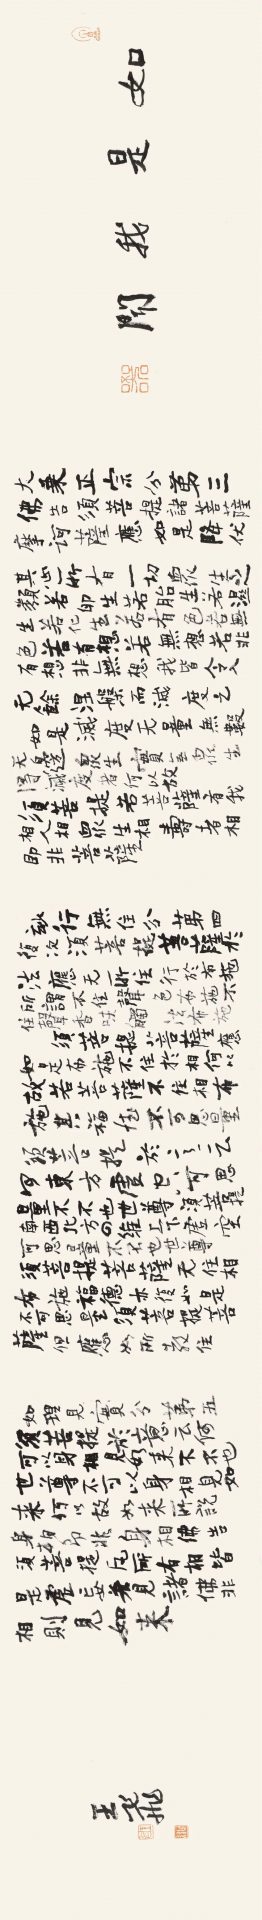 如是我聞
大乘正宗分第三
佛告須菩提諸菩薩
摩訶薩應如是降伏
其心所有一切眾生之
類若卵生若胎生若濕
生若化生若有色若無
色若有想若無想若非
有想非無想我皆令入
无餘涅槃而滅度之
如是滅度无量無數
无邊眾生實無眾生
得滅度者何以故
須菩提若菩薩有我
相人相眾生相壽者相
即非菩薩
妙行無住分第四
復次須菩提菩薩於
法應无所住行於布施
所謂不住色布施不
住聲香味觸法布施
須菩提菩薩應
如是布施不住於相何以
故若菩薩不住相布
施其福德不可思量
須菩提於意云
何東方虛空可思
量不不也世尊須菩提
南西北方四維上下虛空
可思量不不也世尊
須菩提菩薩无住相
布施福德亦復如是
不可思量須菩提菩
薩但應如所教住
如理見實分第五
須菩提於意云何
可以身相見如來不不也
世尊不可以身相見如
來何以故如來所說
身相即非身相佛告
須菩提凡所有相皆
是虛妄若見諸相非
相則見如来
王飛